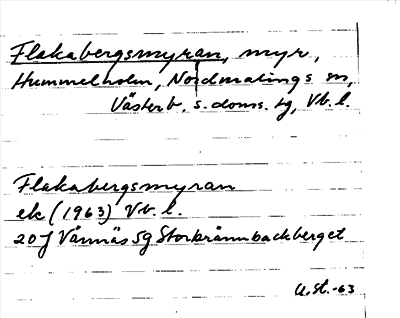 Flakabergsmyran, myr,
Hummelholm, Nordmalings sn,
Västerb. s. doms. tg, Vb. l.
Flakabergsmyran
ek (1963) Vb. l.
20J Vännäs 5g Storbrännbackberget
U.St.-63